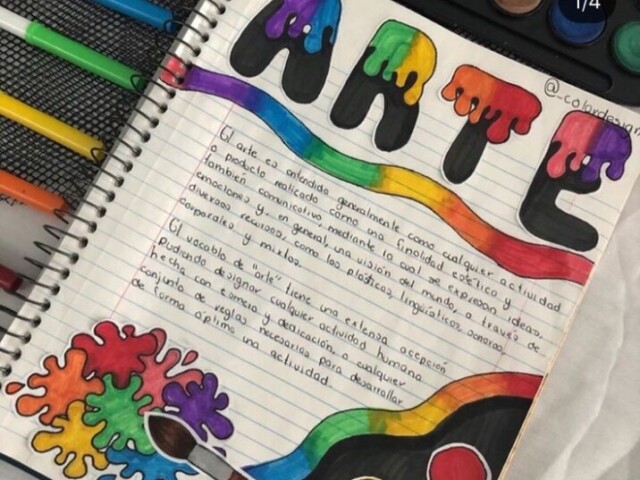 1/4
ARTE
@_colordesign
El arte es entendido generalmente como cualquier actividad
o producto realizado como una finalidad estética y
también comunicativo, mediante la cual se expresan ideas,
emociones y, en general, una visión del mundo, a través de
diversos recursos, como los plásticos, lingüísticos, sonoros,
corporales y mixtos.
El vocablo de "arte" tiene una extensa acepción
pudiendo designar cualquier actividad humana
hecha con esmero y dedicación, o cualquier
conjunto de reglas necesarias para desarrollar
de forma óptima una actividad.